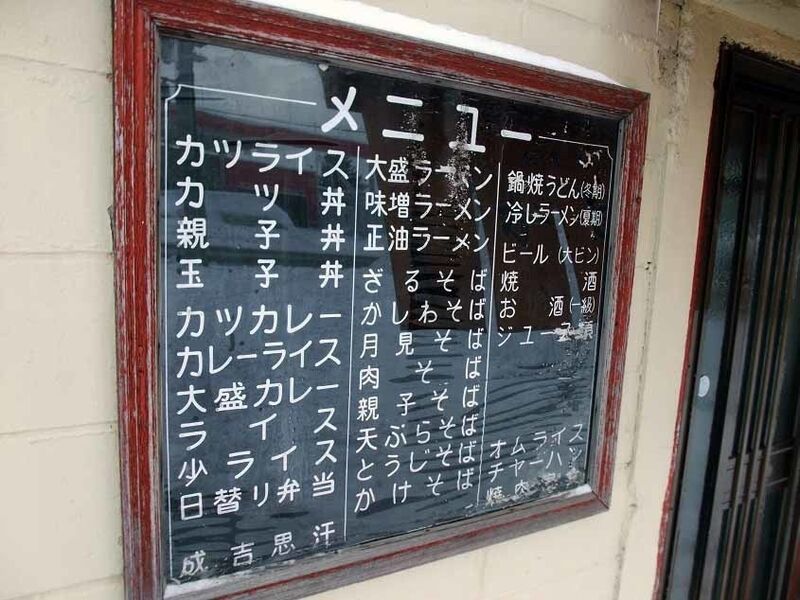 メニュー
カツライス
カツ丼
親子丼
玉子丼
カツカレー
カレーライス
大盛カレー
ライス
少ライス
日替り弁当
成吉思汗
大盛ラーメン
味増ラーメン
正油ラーメン
ざるそば
かしわそば
月見そば
肉そば
親子そば
天ぷらそば
とうじそば
かけそば
鍋焼うどん(冬期)
冷しラーメン(夏期)
ビール(大ビン)
焼酒
お酒(一級)
ジュース類
オムライス
チャーハン
焼肉